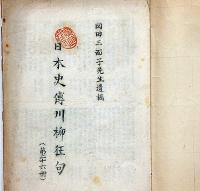 岡田三面子先生遺稿
日本史傳川柳狂句
(第廿六冊)